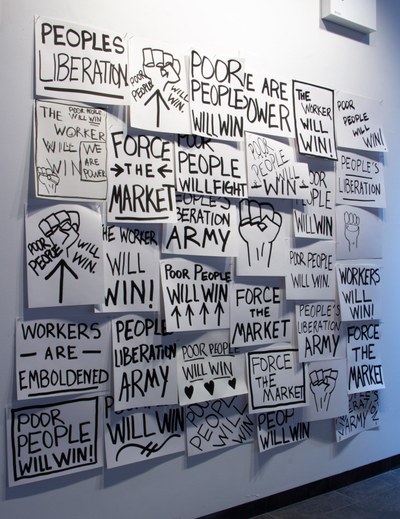 PEOPLES
LIBERATION
POOR
PEOPLE
WILL
WIN.
POOR
PEOPLE
WILL WIN
WE ARE
POWER
THE
WORKER
WILL
WIN!
POOR
PEOPLE
WILL
WIN!
THE
WORKER
WILL
WIN
POOR PEOPLE
WILL WIN
WE
ARE
POWER
FORCE
THE
MARKET
POOR
PEOPLE
WILL FIGHT
POOR
PEOPLE
WILL
WIN
POOR
PEOPLE
WILL WIN
PEOPLE'S
LIBERATION
POOR
PEOPLE
WILL
WIN.
THE WORKER
WILL
WIN!
PEOPLE'S
LIBERATION
ARMY
POOR PEOPLE
WILL WIN.
WORKERS
WILL
WIN!
POOR PEOPLE
WILL WIN
FORCE
THE
MARKET
PEOPLE'S
LIBERATION
ARMY
FORCE
THE
MARKET
WORKERS
ARE
EMBOLDENED
PEOPLE
LIBERATION
ARMY
POOR PEOPLE
WILL WIN
FORCE
THE
MARKET
POOR
PEOPLE
WILL WIN!
PEOPLE
WILL WIN
POOR
PEOPLE
WILL
WIN
PEOPLE
WILL WIN
ARMY